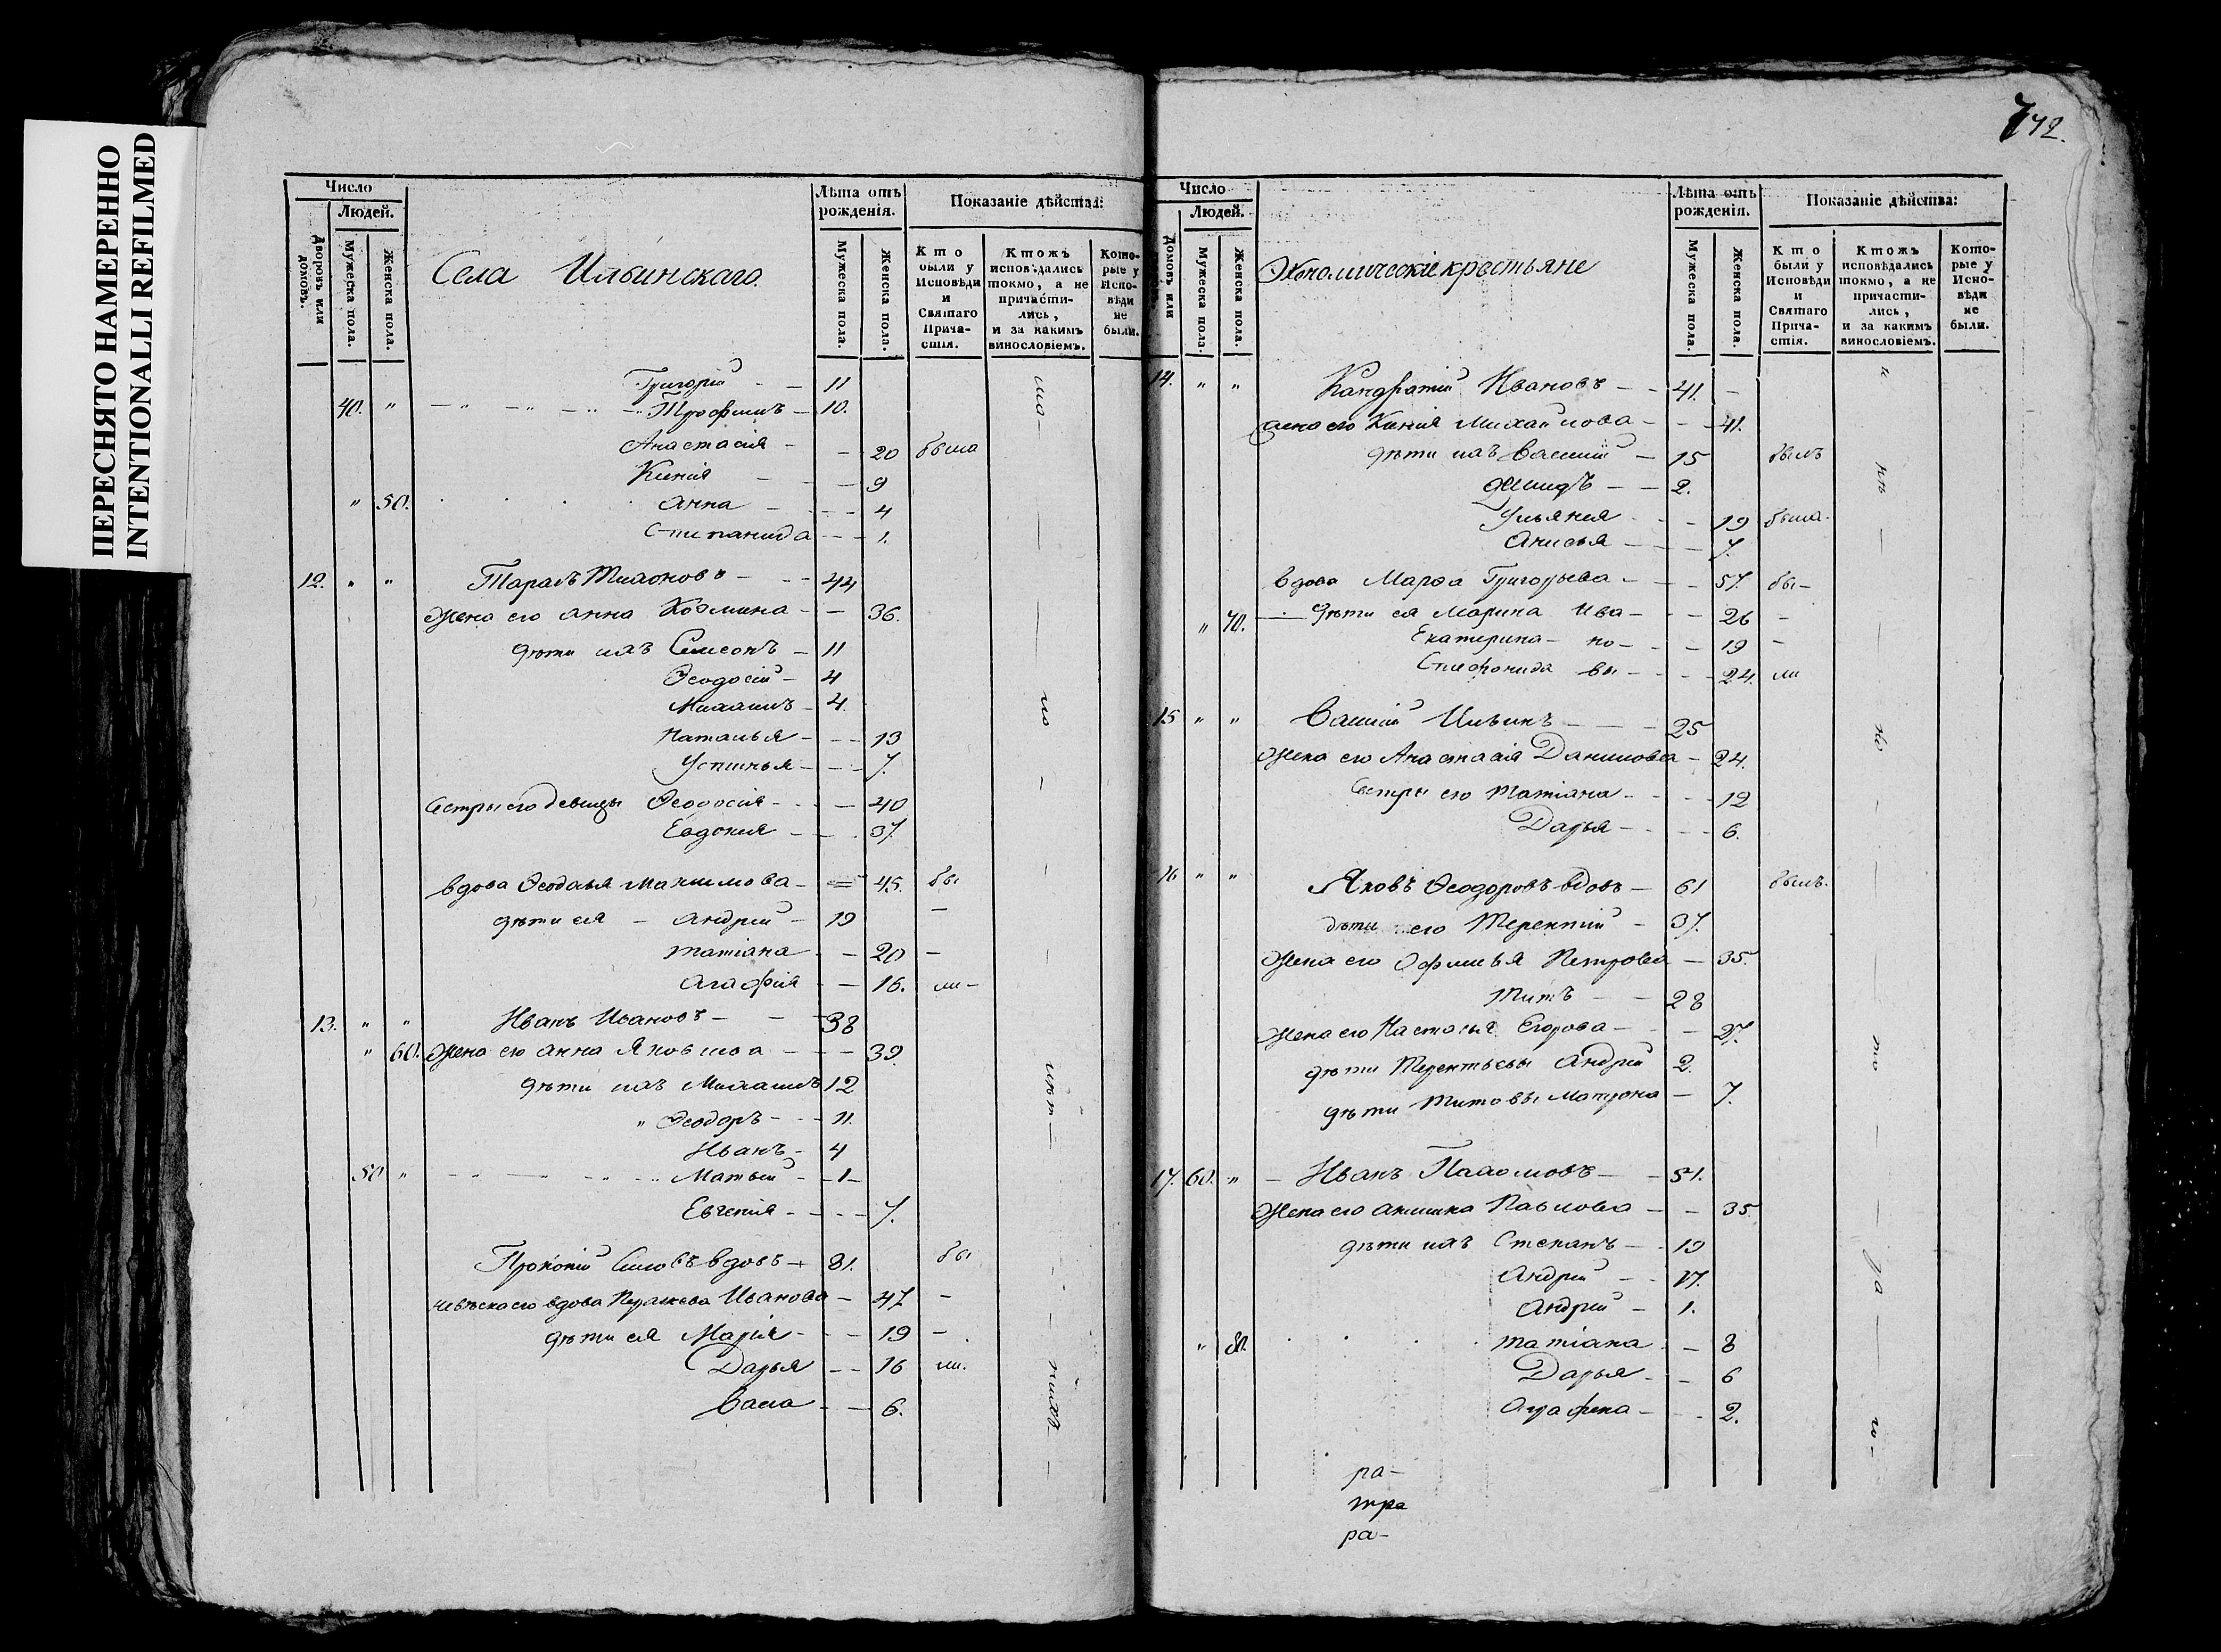 ПЕРЕСНЯТО НАМЕРЕННО
INTENTIONALLI REFILMED
742.
Число
Людей.
Дворовъ или домовъ.
Мужеска пола.
Женска пола.
Села Ильинскаго.
Лѣта отъ рожденія.
Мужеска пола.
Женска пола.
Показаніе дѣйства:
Кто были у Исповѣди и Святаго Прича- стія.
Ктожъ исповѣдались токмо, а не причасти- лись, и за какимъ винословіемъ.
Кото- рые у Испо- вѣди не были.
Григорій - - 11
40. " - " - " - " - Трофимъ - 10.
Анастасія - - 20 была
Ксенія - - - 9
" 50. Анна - - - 4
Степанида - - - 1.
12. " " Тарасъ Тихоновъ - - - 44
Жена его Анна Козмина - - 36.
дѣти ихъ Симеонъ - 11
Ѳеодосій - 4
Михаилъ - 4.
Наталья - - - 13
Устинья - - - 7.
Сестры его девицы Ѳеодосія - - - 40
Евдокия - - - 37.
вдова Ѳеодосья Максимова - = 45. бы
дѣти ея - Андрей - 19 -
татіана - - 20 -
Агафія - - 16. ли -
13. " " Иванъ Ивановъ - - - 38
" 60. Жена его Анна Яковлева - - - 39.
дѣти ихъ Михаилъ 12
" Ѳеодоръ - - - 11.
Иванъ - 4
50 " - - - - - - Матвей - - 1 -
Евгенія - - - - 7.
Прокопій Силовъ вдовъ - 81. бы
невѣска его вдова Парасковья Иванова - 47. -
дѣти ея Марія - - - 19 -
Дарья - - 16 ли.
Васса - - 6.
Число
Людей.
Домовъ или
Мужеска пола.
Женска пола.
Экономическіе крестьяне
Лѣта отъ рожденія.
Мужеска пола.
Женска пола.
Показаніе дѣйства:
Кто были у Исповѣди и Святаго Прича- стія.
Ктожъ исповѣдались токмо, а не причасти- лись, и за какимъ винословіемъ.
Кото- рые у Испо- вѣди не были.
14. " " Кандратій Ивановъ - - 41. -
жена его Ксенія Михайлова - - - 41.
дѣти ихъ Василій - 15 былъ
- - 2.
Ульяния - - 19 была.
Анисья - - - 7.
вдова Марѳа Григорьева - - - 57. бы -
" 70. - дѣти ея Марина Ива - - - 26 -
Екатерина - но - - - 19 -
Степанида вы - - - - 24. ли
15 " " Василій Ильинъ - - - 25
Жена его Анастасія Данилова - 24.
Сестры его Татіана - - - - 12
Дарья - - - - 6.
16 " " Яковъ Ѳеодоровъ вдовъ - 61 былъ.
дѣти его Терентій - 37.
Жена его Офимья Петрова - 35.
Титъ - - 28
Жена его Настасья Егорова - - - 27.
дѣти Терентьевы Андрей 2.
дѣти Титовы Матрона - 7.
17. 60. " - Иванъ Пахомовъ - - 51.
Жена его Акилина Павлова - - 35
дѣти ихъ Степанъ - - 19
Андрей - - 17.
Андрей - 1.
" 80. татіана - - 8
Дарья - - 6
Аграфена - - - 2.
ра -
тра
ра -